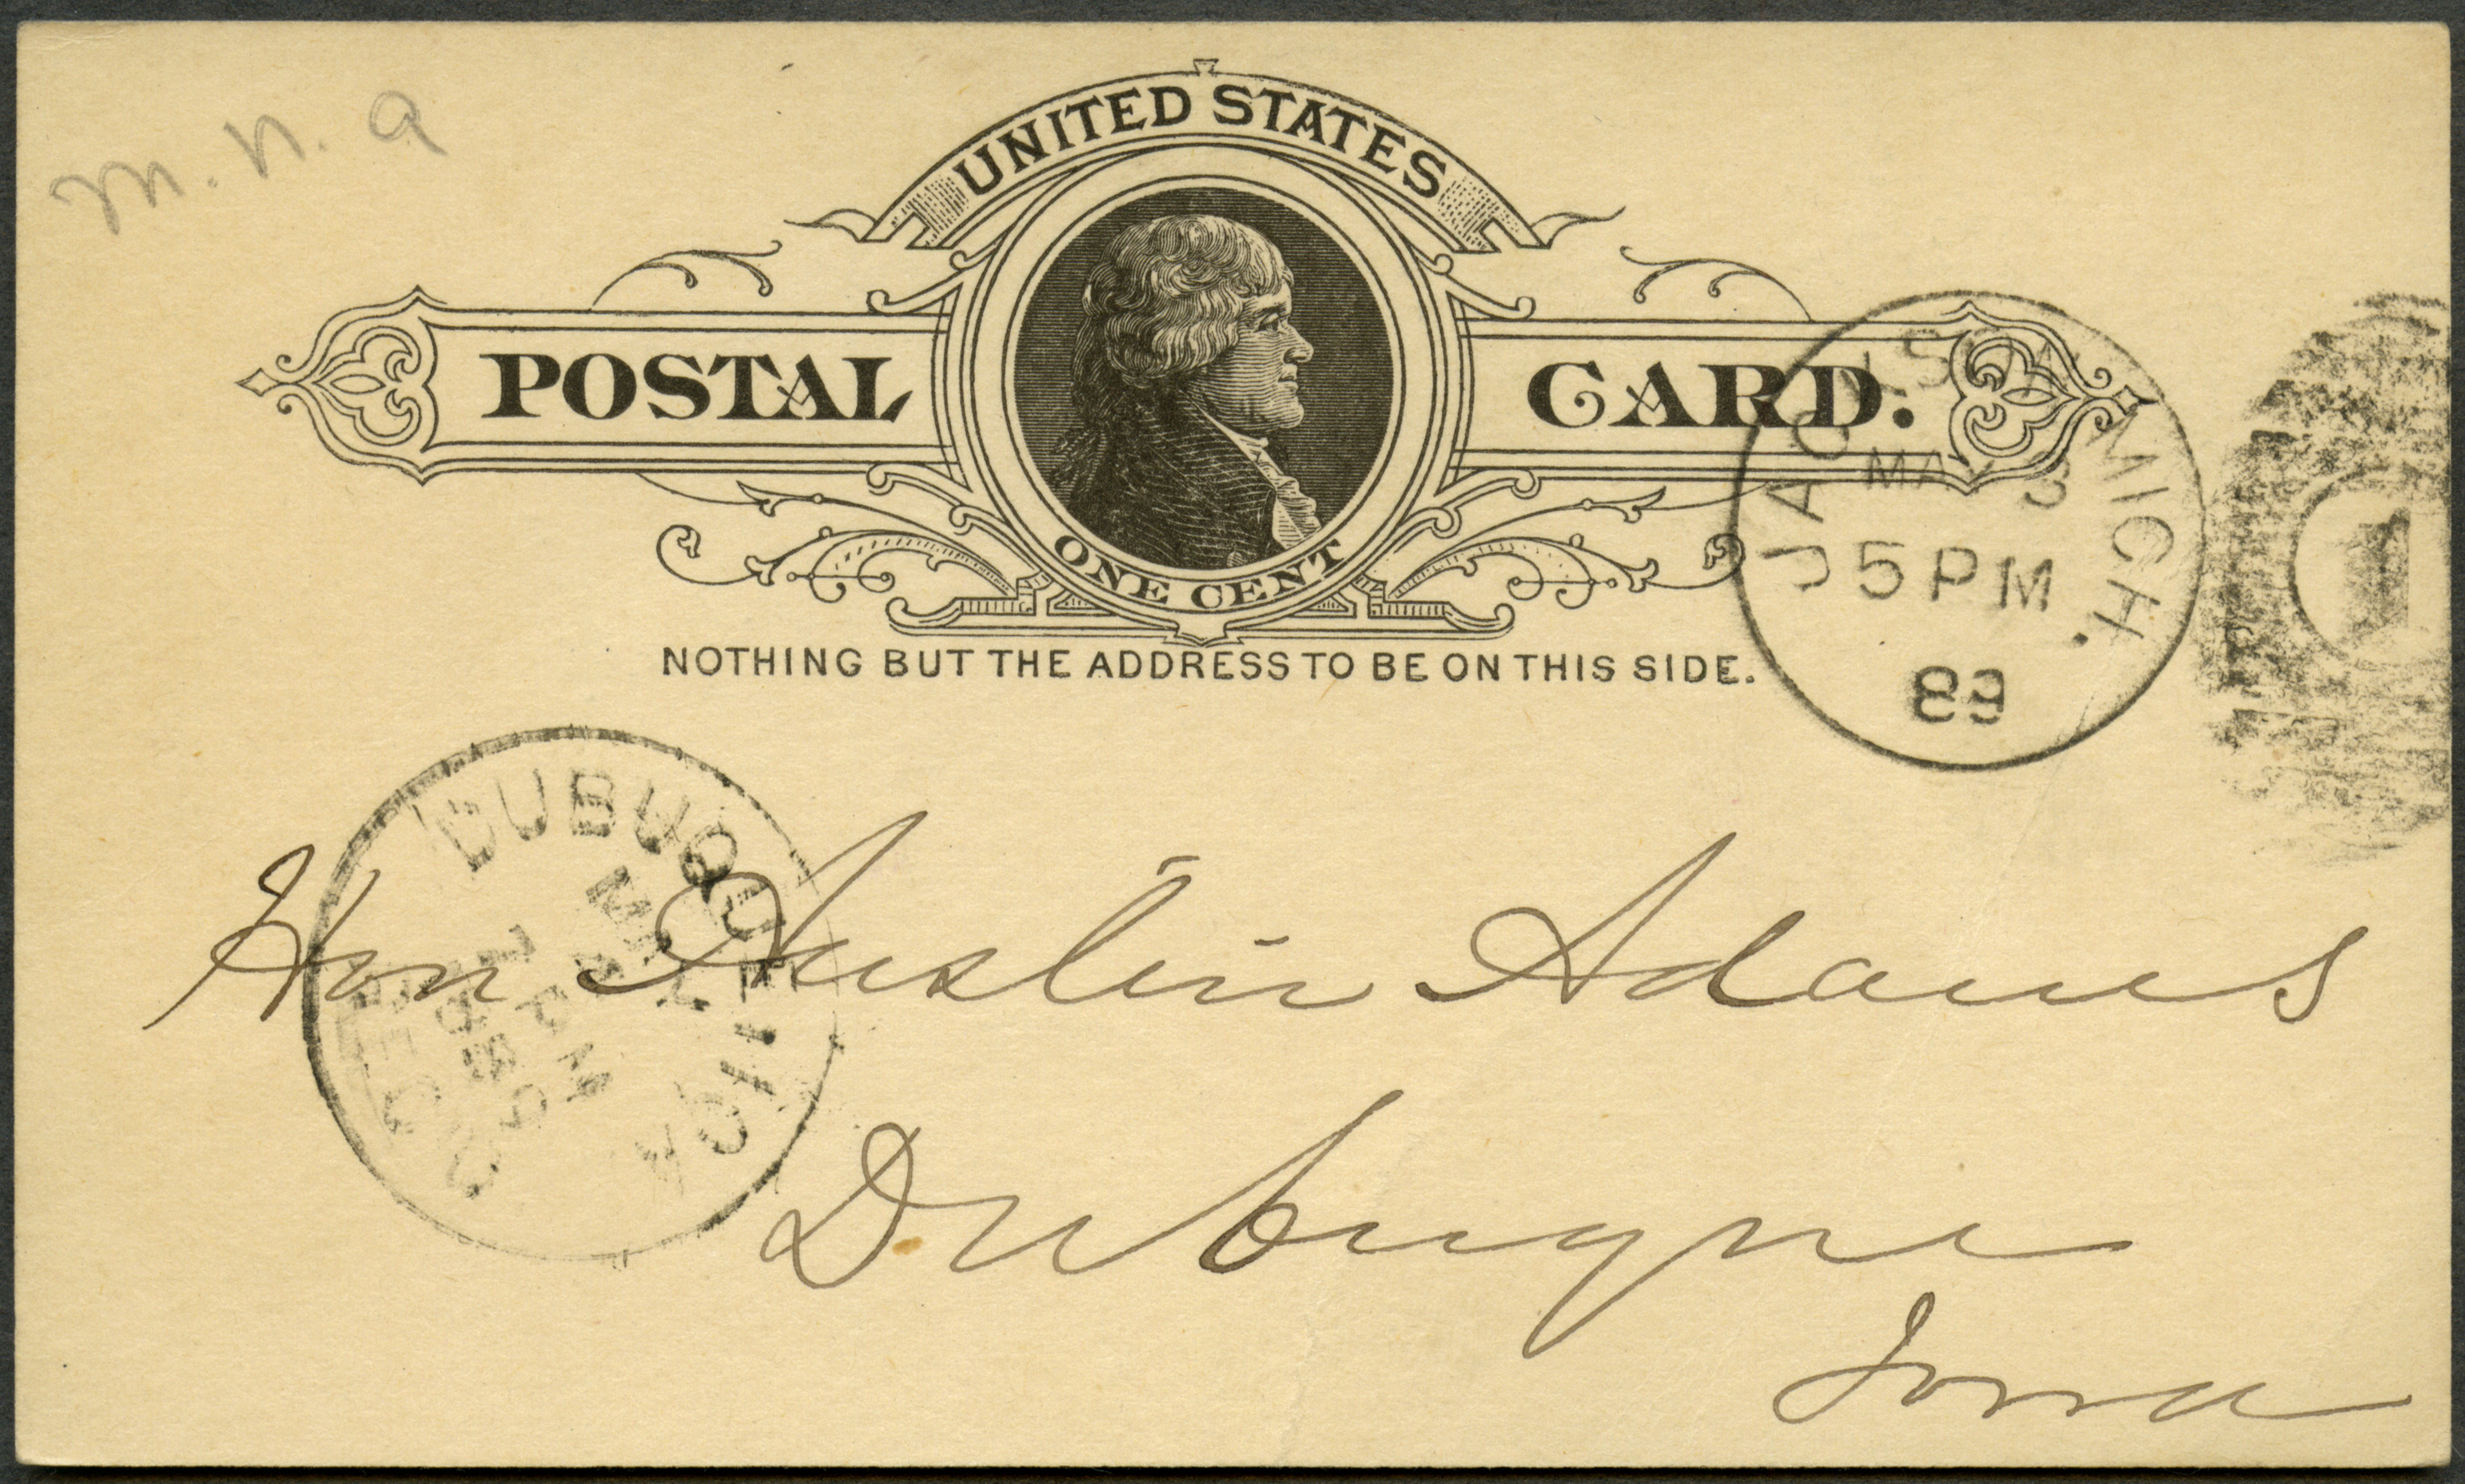 m. n. a
UNITED STATES
POSTAL CARD.
ONE CENT
NOTHING BUT THE ADDRESS TO BE ON THIS SIDE.
JACKSON MICH.
MAY 3
5 PM
89
1
DUBUQUE IOWA
MAY
PM
REC'D
Hon Austin Adams
Dubuque
Iowa